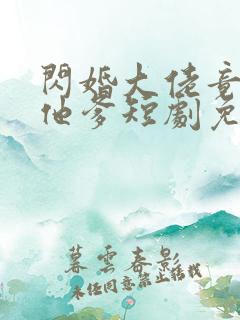 閃婚大佬竟
他爹短劇免
暮雲春影
未经同意禁止搭载